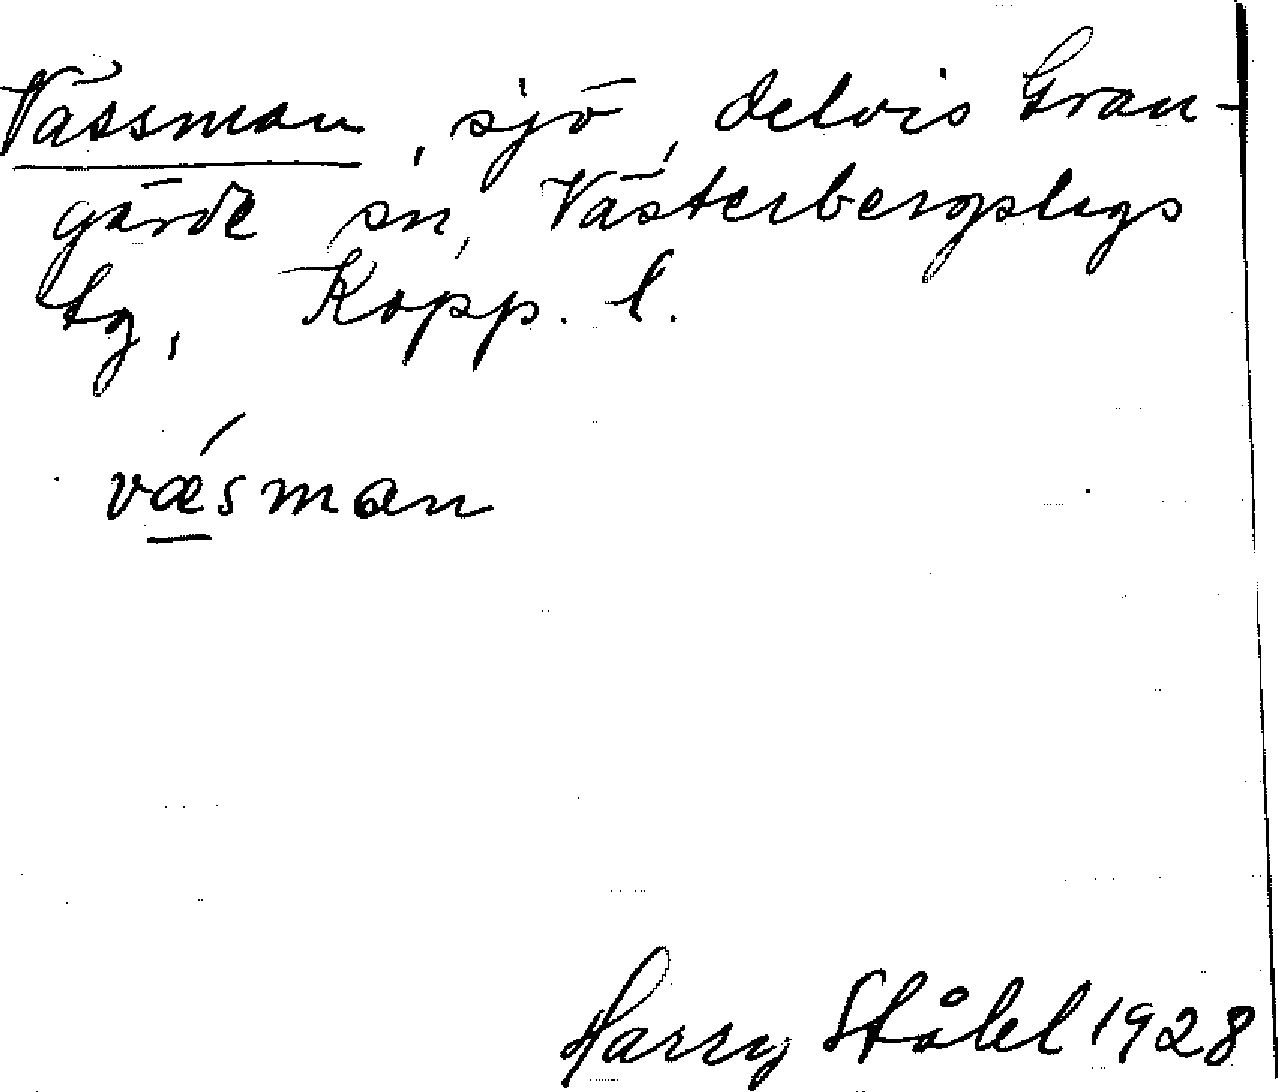 Vässman, sjö, delvis Gran-
gärde sn, Västerbergslags
tg, Kopp. l.
væ´sman
Harry Ståhl 1928